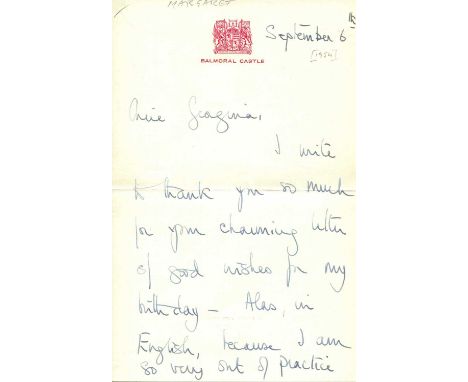 MARGARET
September 6th
[1954]
BALMORAL CASTLE
Georgina,
I write
to thank you so much
for your charming letter
of good wishes for my
birthday – Alas, in
English, because I am
so very out of practice